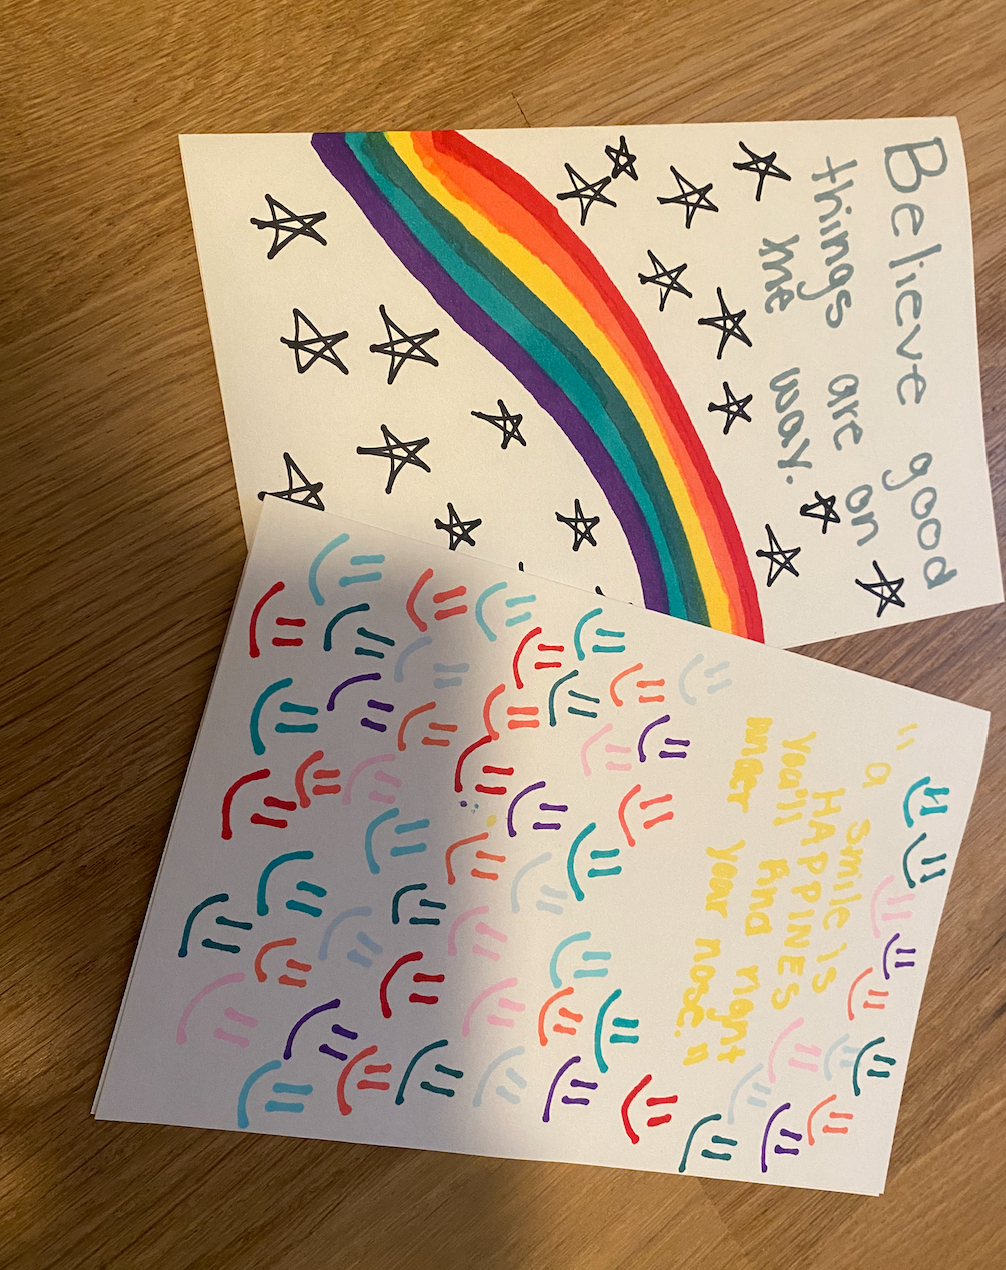 Believe good
things are on
the way.
" a smile is
HAPPINES
you'll find right
under your nose."